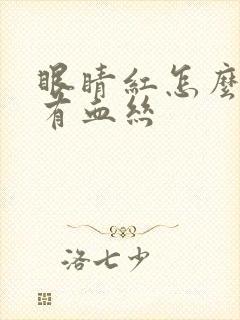 眼睛紅怎麼
有血絲
洛七少